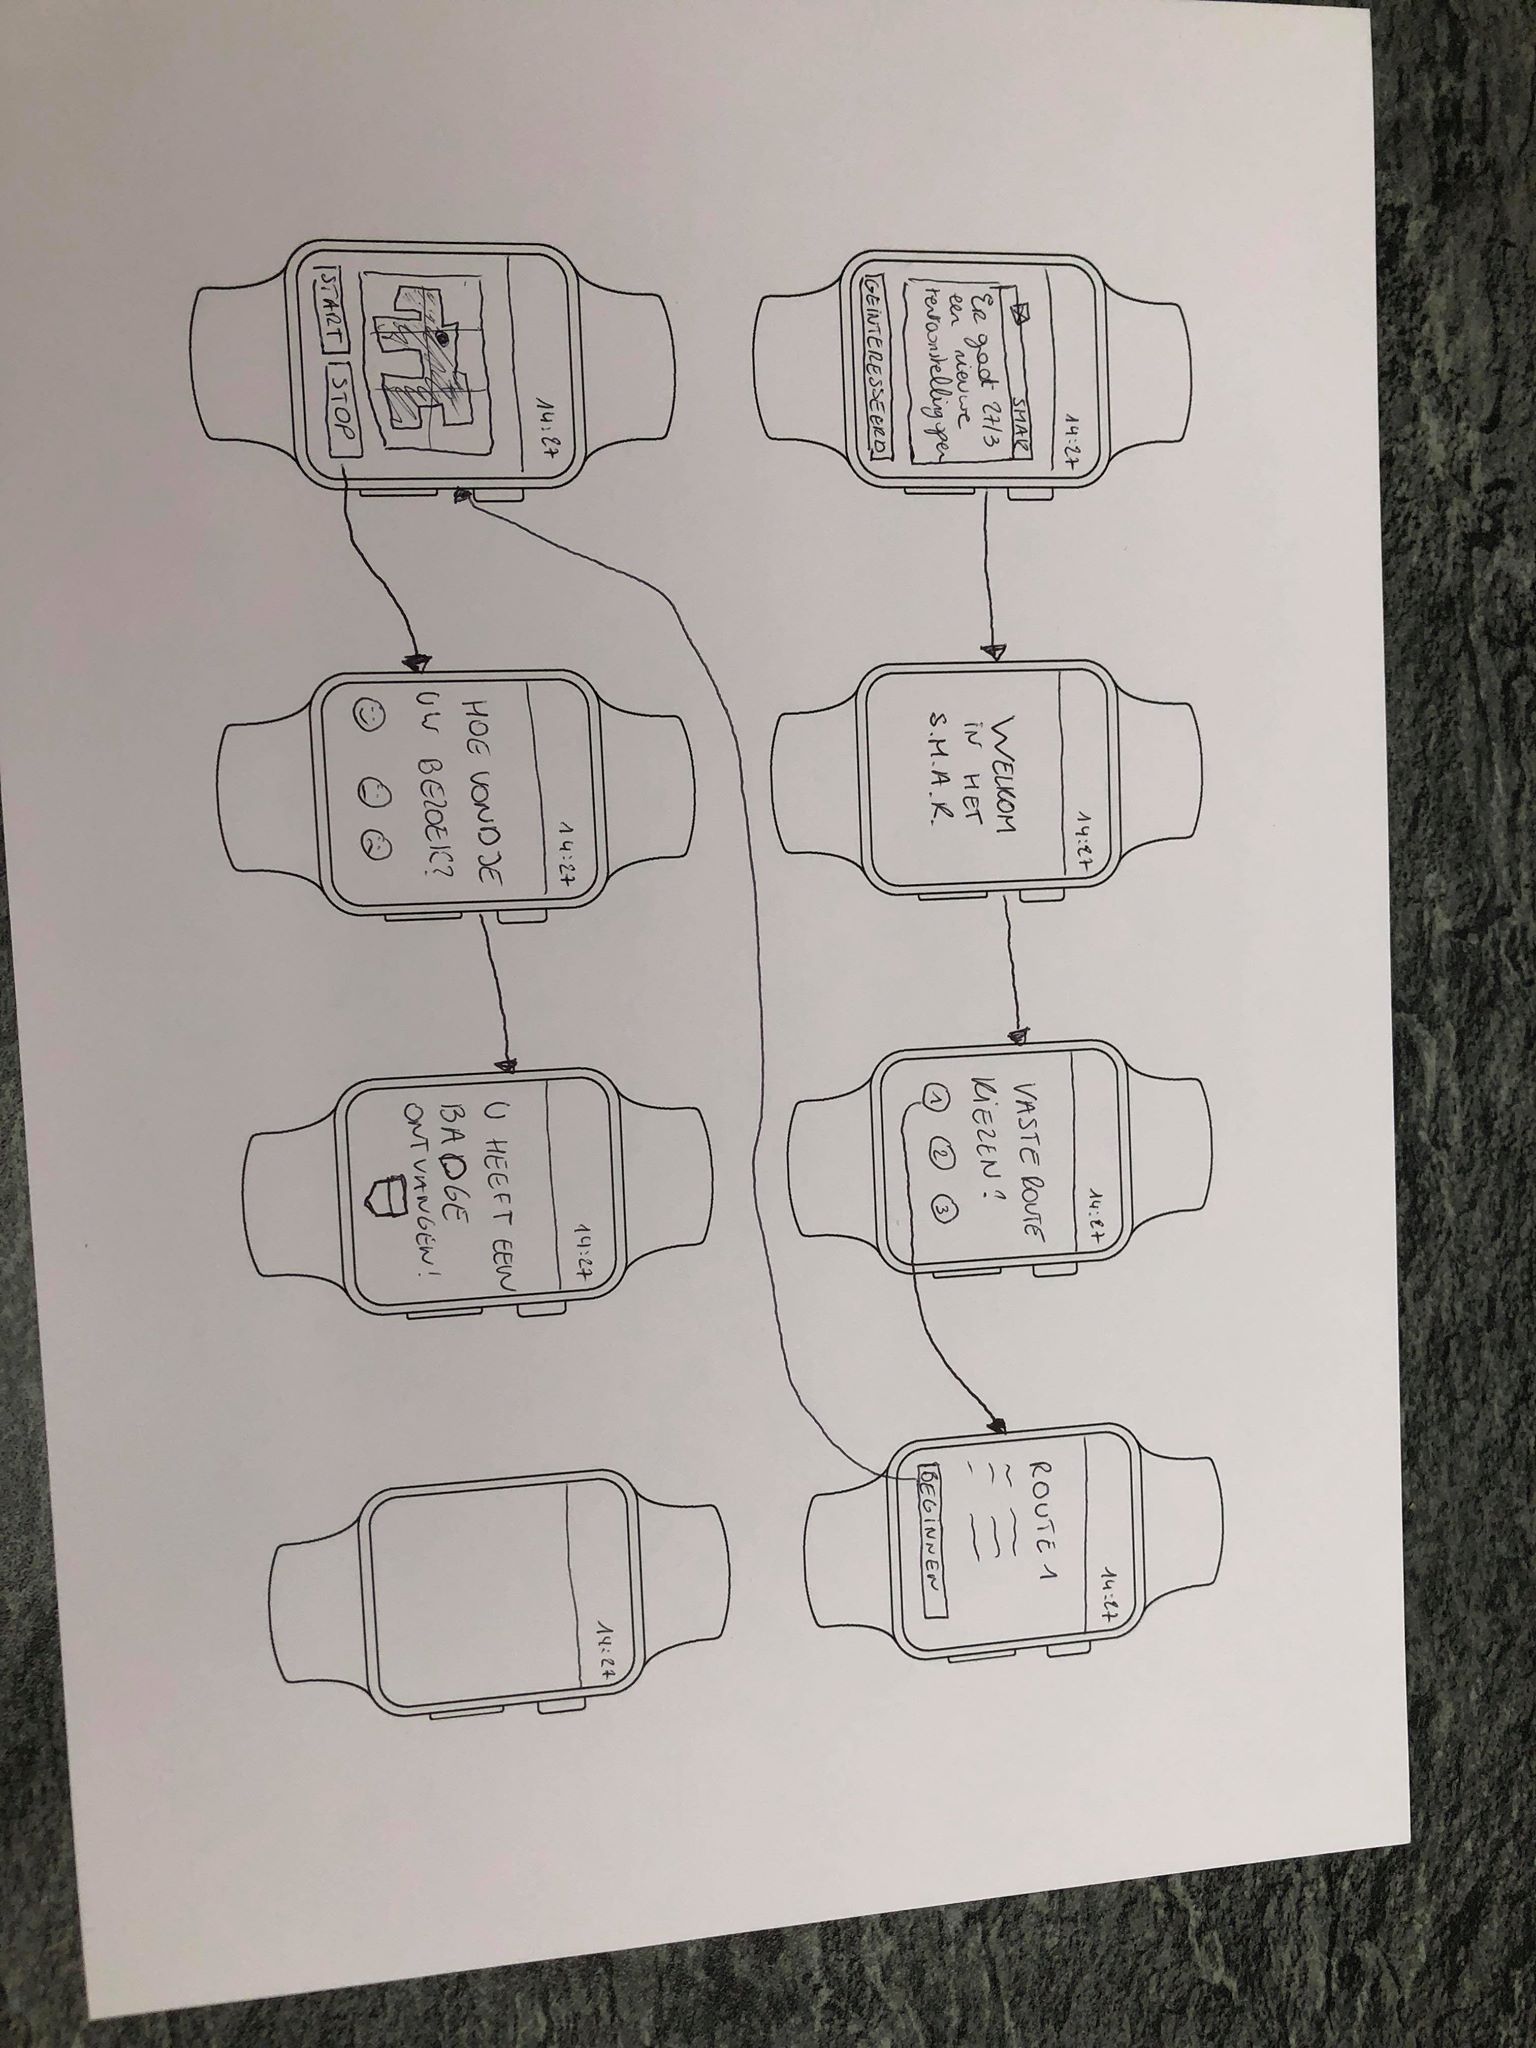 14:27
SMAK
Er gaat 27/3
een nieuwe
tentoonstelling open
GEINTERESSEERD
14:27
WELKOM
IN HET
S.M.A.K.
14:27
VASTE ROUTE
KIEZEN?
1 2 3
14:27
ROUTE 1
BEGINNEN
14:27
START STOP
14:27
HOE VOND JE
UW BEZOEK?
14:27
U HEEFT EEN
BADGE
ONTVANGEN!
14:27